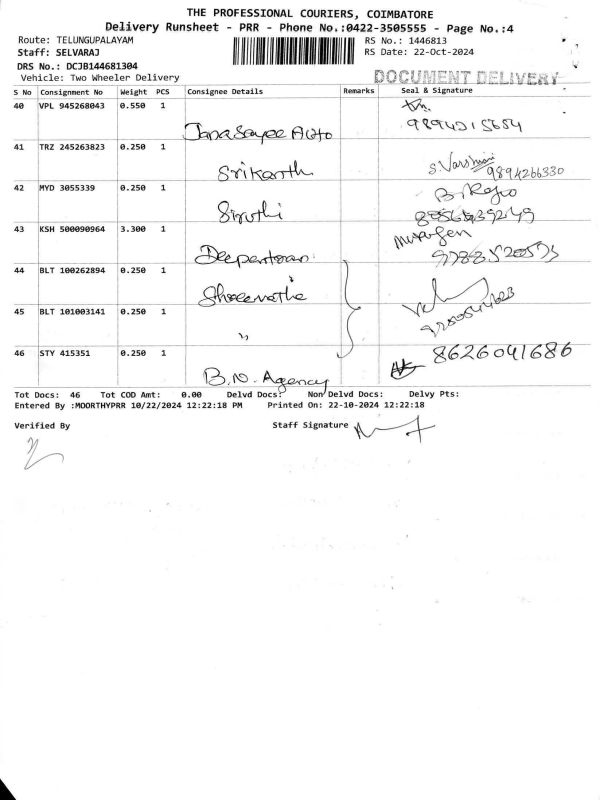 THE PROFESSIONAL COURIERS, COIMBATORE
Delivery Runsheet - PRR - Phone No.:0422-3505555 - Page No.:4
Route: TELUNGUPALAYAM RS No.: 1446813
Staff: SELVARAJ RS Date: 22-Oct-2024
DRS No.: DCJB144681304
Vehicle: Two Wheeler Delivery DOCUMENT DELIVERY
S No Consignment No Weight PCS Consignee Details Remarks Seal & Signature
40 VPL 945268043 0.550 1
Auto
41 TRZ 245263823 0.250 1
Srikanth S.Varshini 9894266330
42 MYD 3055339 0.250 1
Siruthi
43 KSH 500090964 3.300 1
44 BLT 100262894 0.250 1
45 BLT 101003141 0.250 1
"
46 STY 415351 0.250 1 8626041686
B.N. Agency
Tot Docs: 46 Tot COD Amt: 0.00 Delvd Docs: Non Delvd Docs: Delvy Pts:
Entered By :MOORTHYPRR 10/22/2024 12:22:18 PM Printed On: 22-10-2024 12:22:18
Verified By Staff Signature